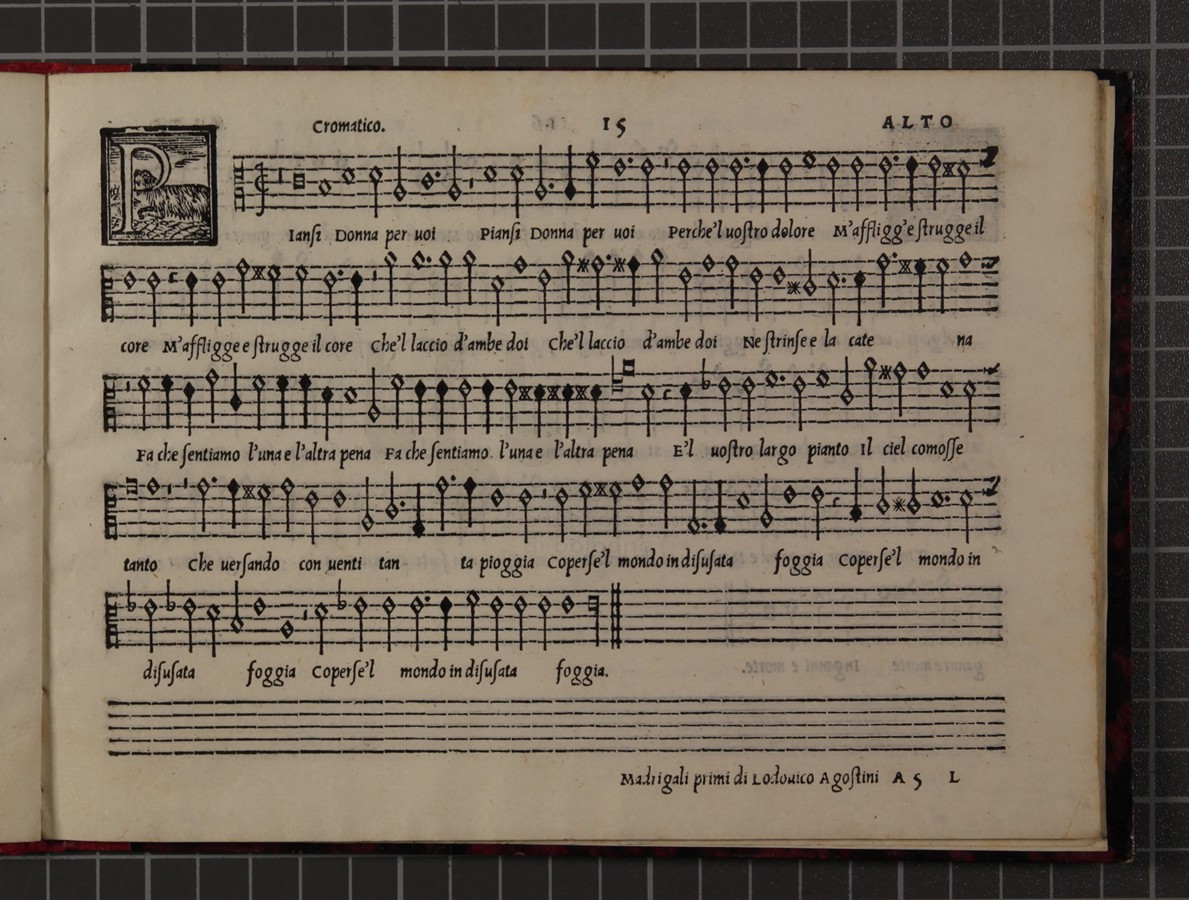 Cromatico. 15 ALTO
P Ianſi Donna per uoi Pianſi Donna per uoi Perche'l uoſtro dolore M'affligg'e ſtrugge il
core M'affligge e ſtrugge il core Che'l laccio d'ambe doi Che'l laccio d'ambe doi Ne ſtrinſe e la cate na
Fa che ſentiamo l'una e l'altra pena Fa che ſentiamo l'una e l'altra pena E'l uoſtro largo pianto Il ciel comoſſe
tanto Che uerſando con uenti tan ta pioggia Coperſe'l mondo in diſuſata foggia Coperſe'l mondo in
diſuſata foggia Coperſe'l mondo in diſuſata foggia.
Madrigali primi di Lodouico Agoſtini A 5 L